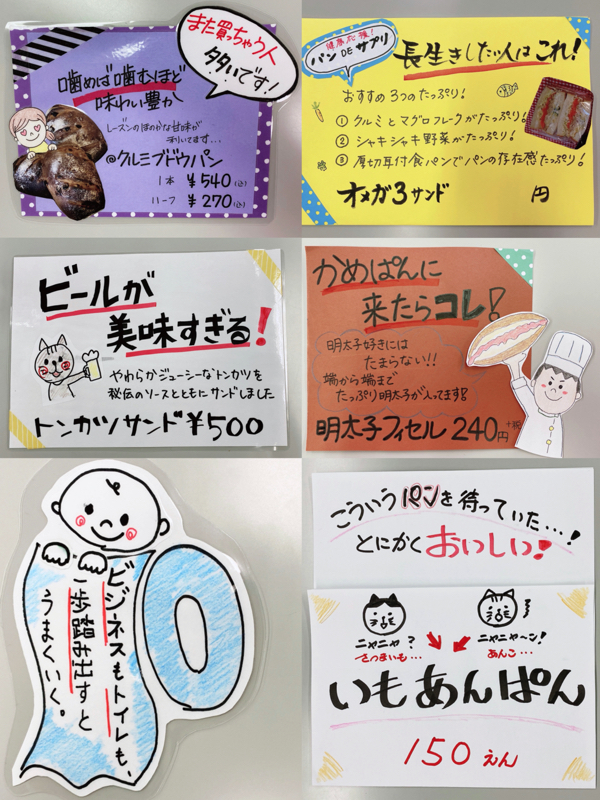 また買っちゃう人
多いです!
噛めば噛むほど
味わい豊か
レーズンのほのかな甘味が
きいてます…
@クルミブドウパン
1本 ¥540(込)
ハーフ ¥270(込)
健康応援!
パン DE サプリ
長生きしたい人はこれ!
おすすめ3つのたっぷり!
①クルミとマグロフレークがたっぷり!
②シャキシャキ野菜がたっぷり!
③厚切耳付食パンでパンの存在感たっぷり!
オメガ3サンド 円
ビールが
美味すぎる!
やわらかジューシーなトンカツを
秘伝のソースとともにサンドしました
トンカツサンド¥500
かめぱんに
来たらコレ!
明太子好きには
たまらない!!
端から端まで
たっぷり明太子が入ってます!
明太子フィセル 240円+税
ビジネスもトイレも、
一歩踏み出すと
うまくいく。
こういうパンを待っていた…!
とにかくおいしい!
ニャニャ?
さつまいも…
ニャニャ~ン!
あんこ…
いもあんぱん
150えん